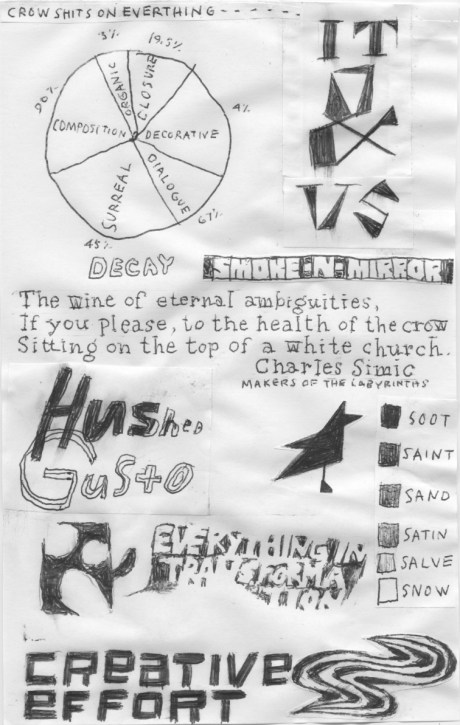 CROW SHITS ON EVERTHING - - - - - - -
3%
19.5%
90%
4%
67%
45%
ORGANIC
CLOSURE
COMPOSITION
DECORATIVE
SURREAL
DIALOGUE
IT
&
US
DECAY
SMOKE:N:MIRROR
The wine of eternal ambiguities,
If you please, to the health of the crow
Sitting on the top of a white church.
Charles Simic
MAKERS OF THE LABYRINTHS
Hushed
Gusto
SOOT
SAINT
SAND
SATIN
SALVE
SNOW
EVERYTHING IN
TRANSFORMA
TION
CREATIVE
EFFORT